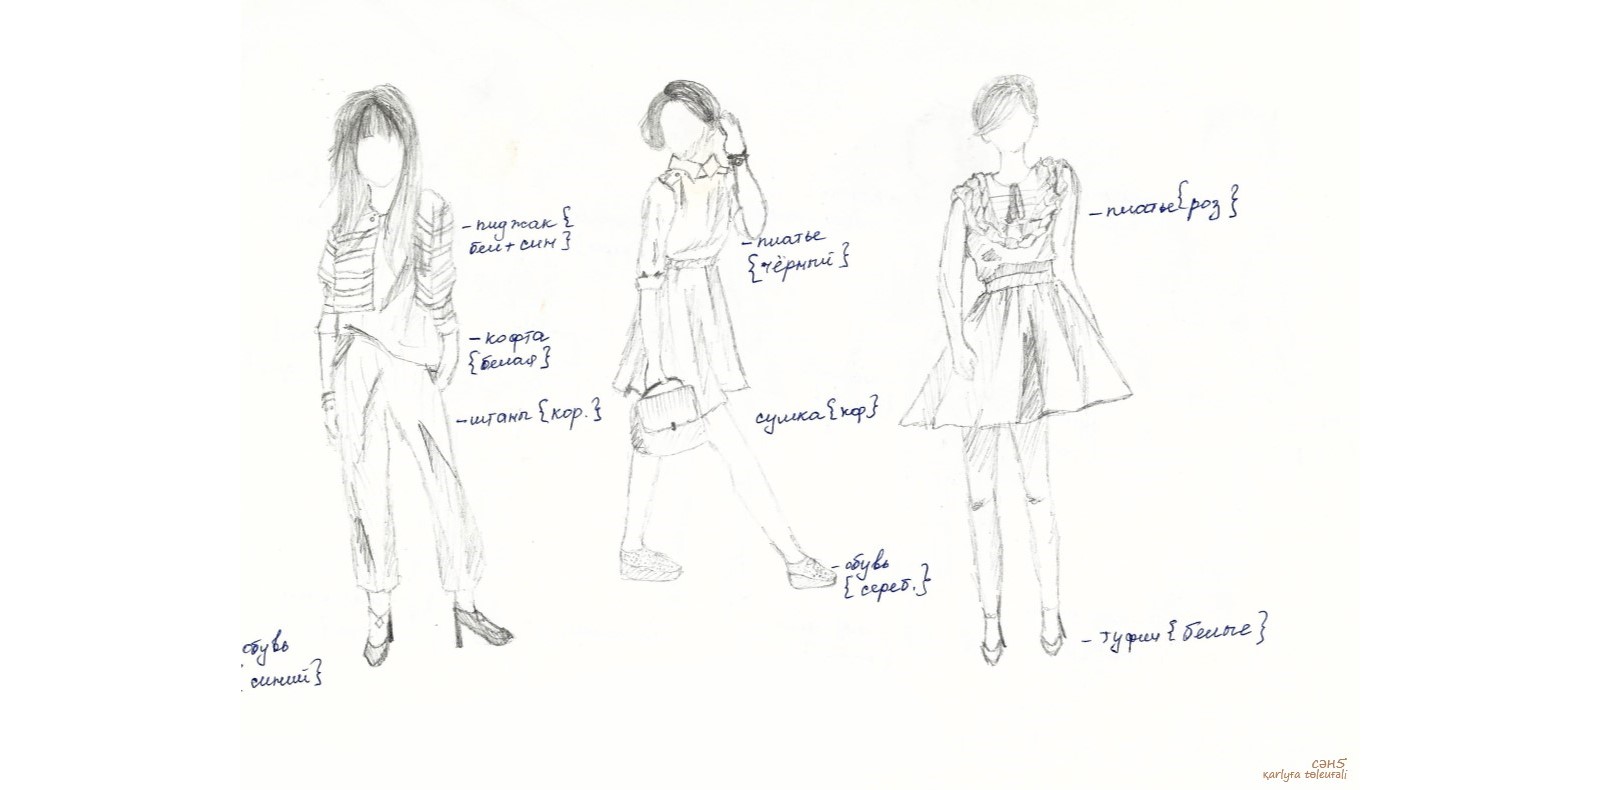 - пиджак {
бел + син }
- кофта
{ белая }
- штаны { кор. }
обувь
синий }
- платье
{ чёрный }
сумка { кор }
- обувь
{ сереб. }
- платье { роз }
- туфли { белые }
сәнб
қarlyға təleuғəli